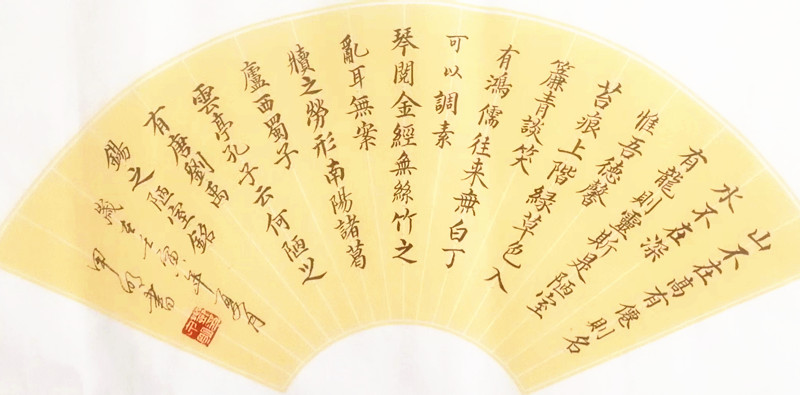 山不在高有僊則名
水不在深
有龍則靈斯是陋室
惟吾德馨
苔痕上階緑草色入
簾青談笑
有鴻儒往来無白丁
可以調素
琴閱金經無絲竹之
亂耳無案
牘之勞形南陽諸葛
廬西蜀子
雲亭孔子云何陋之
有唐劉禹
錫之陋室銘
歲在壬寅年夏月
書